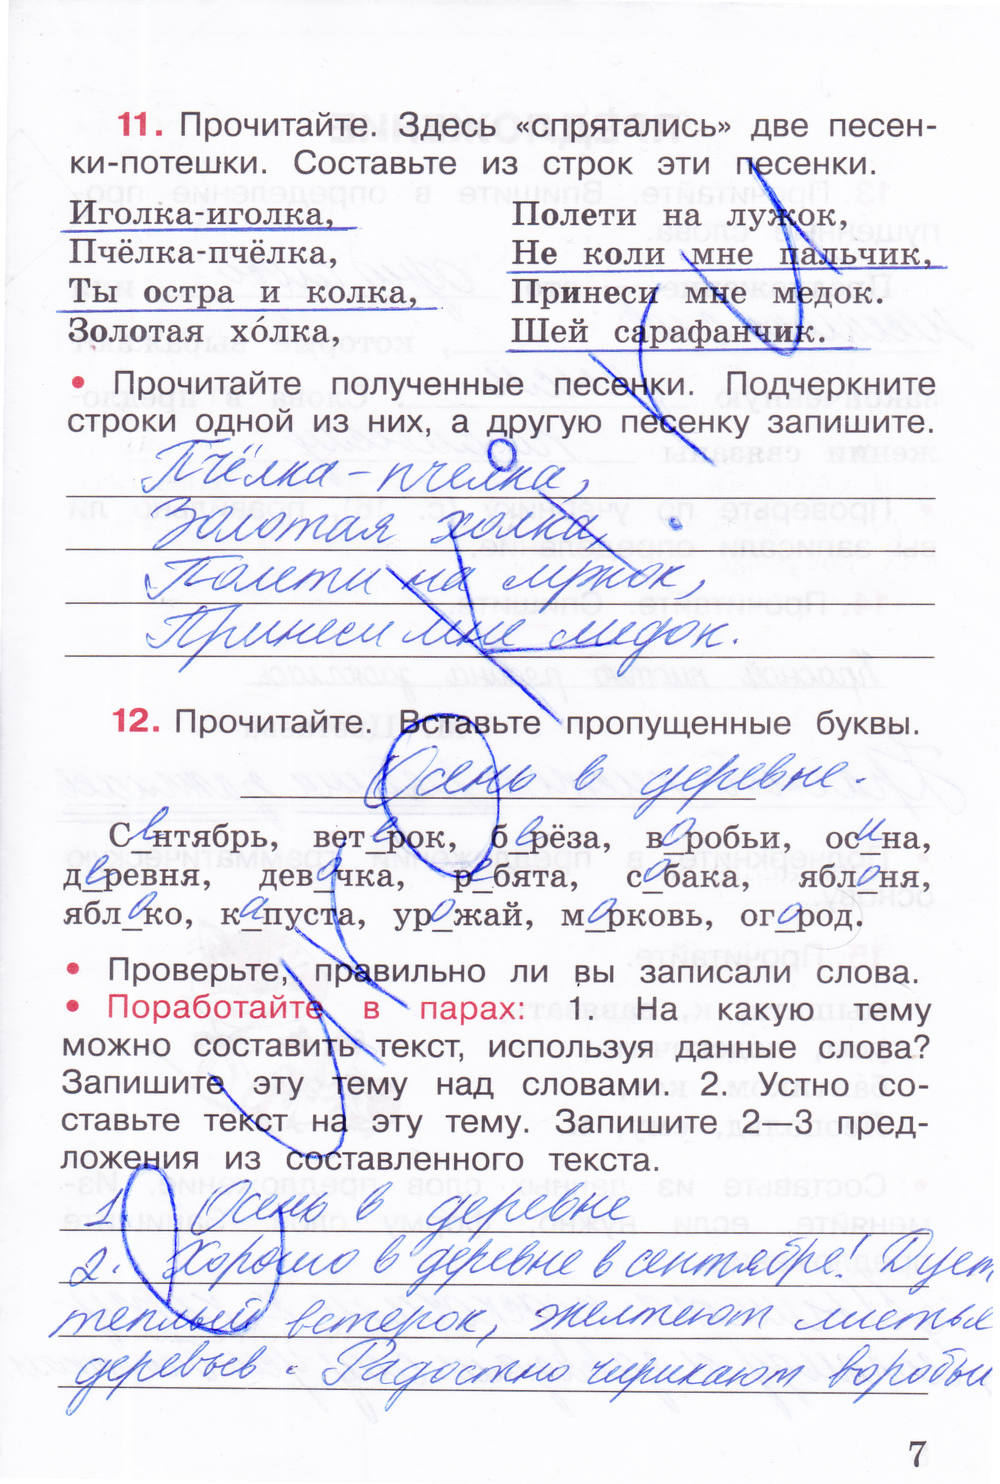 11. Прочитайте. Здесь «спрятались» две песен-
ки-потешки. Составьте из строк эти песенки.
Иголка-иголка,
Пчёлка-пчёлка,
Ты остра и колка,
Золотая хо́лка,
Полети на лужок,
Не коли мне пальчик,
Принеси мне медок.
Шей сарафанчик.
• Прочитайте полученные песенки. Подчеркните
строки одной из них, а другую песенку запишите.
Пчёлка-пчелка,
Золотая холка
Полети на лужок,
Принеси мне медок.
12. Прочитайте. Вставьте пропущенные буквы.
Осень в деревне.
Сентябрь, ветерок, берёза, воробьи, осина,
деревня, девочка, ребята, собака, яблоня,
яблоко, капуста, урожай, морковь, огород.
• Проверьте, правильно ли вы записали слова.
• Поработайте в парах: 1. На какую тему
можно составить текст, используя данные слова?
Запишите эту тему над словами. 2. Устно со-
ставьте текст на эту тему. Запишите 2—3 пред-
ложения из составленного текста.
1. Осень в деревне
2. Хорошо в деревне в сентябре! Дует
теплый ветерок, желтеют листья
деревьев. Радостно чирикают воробьи
7